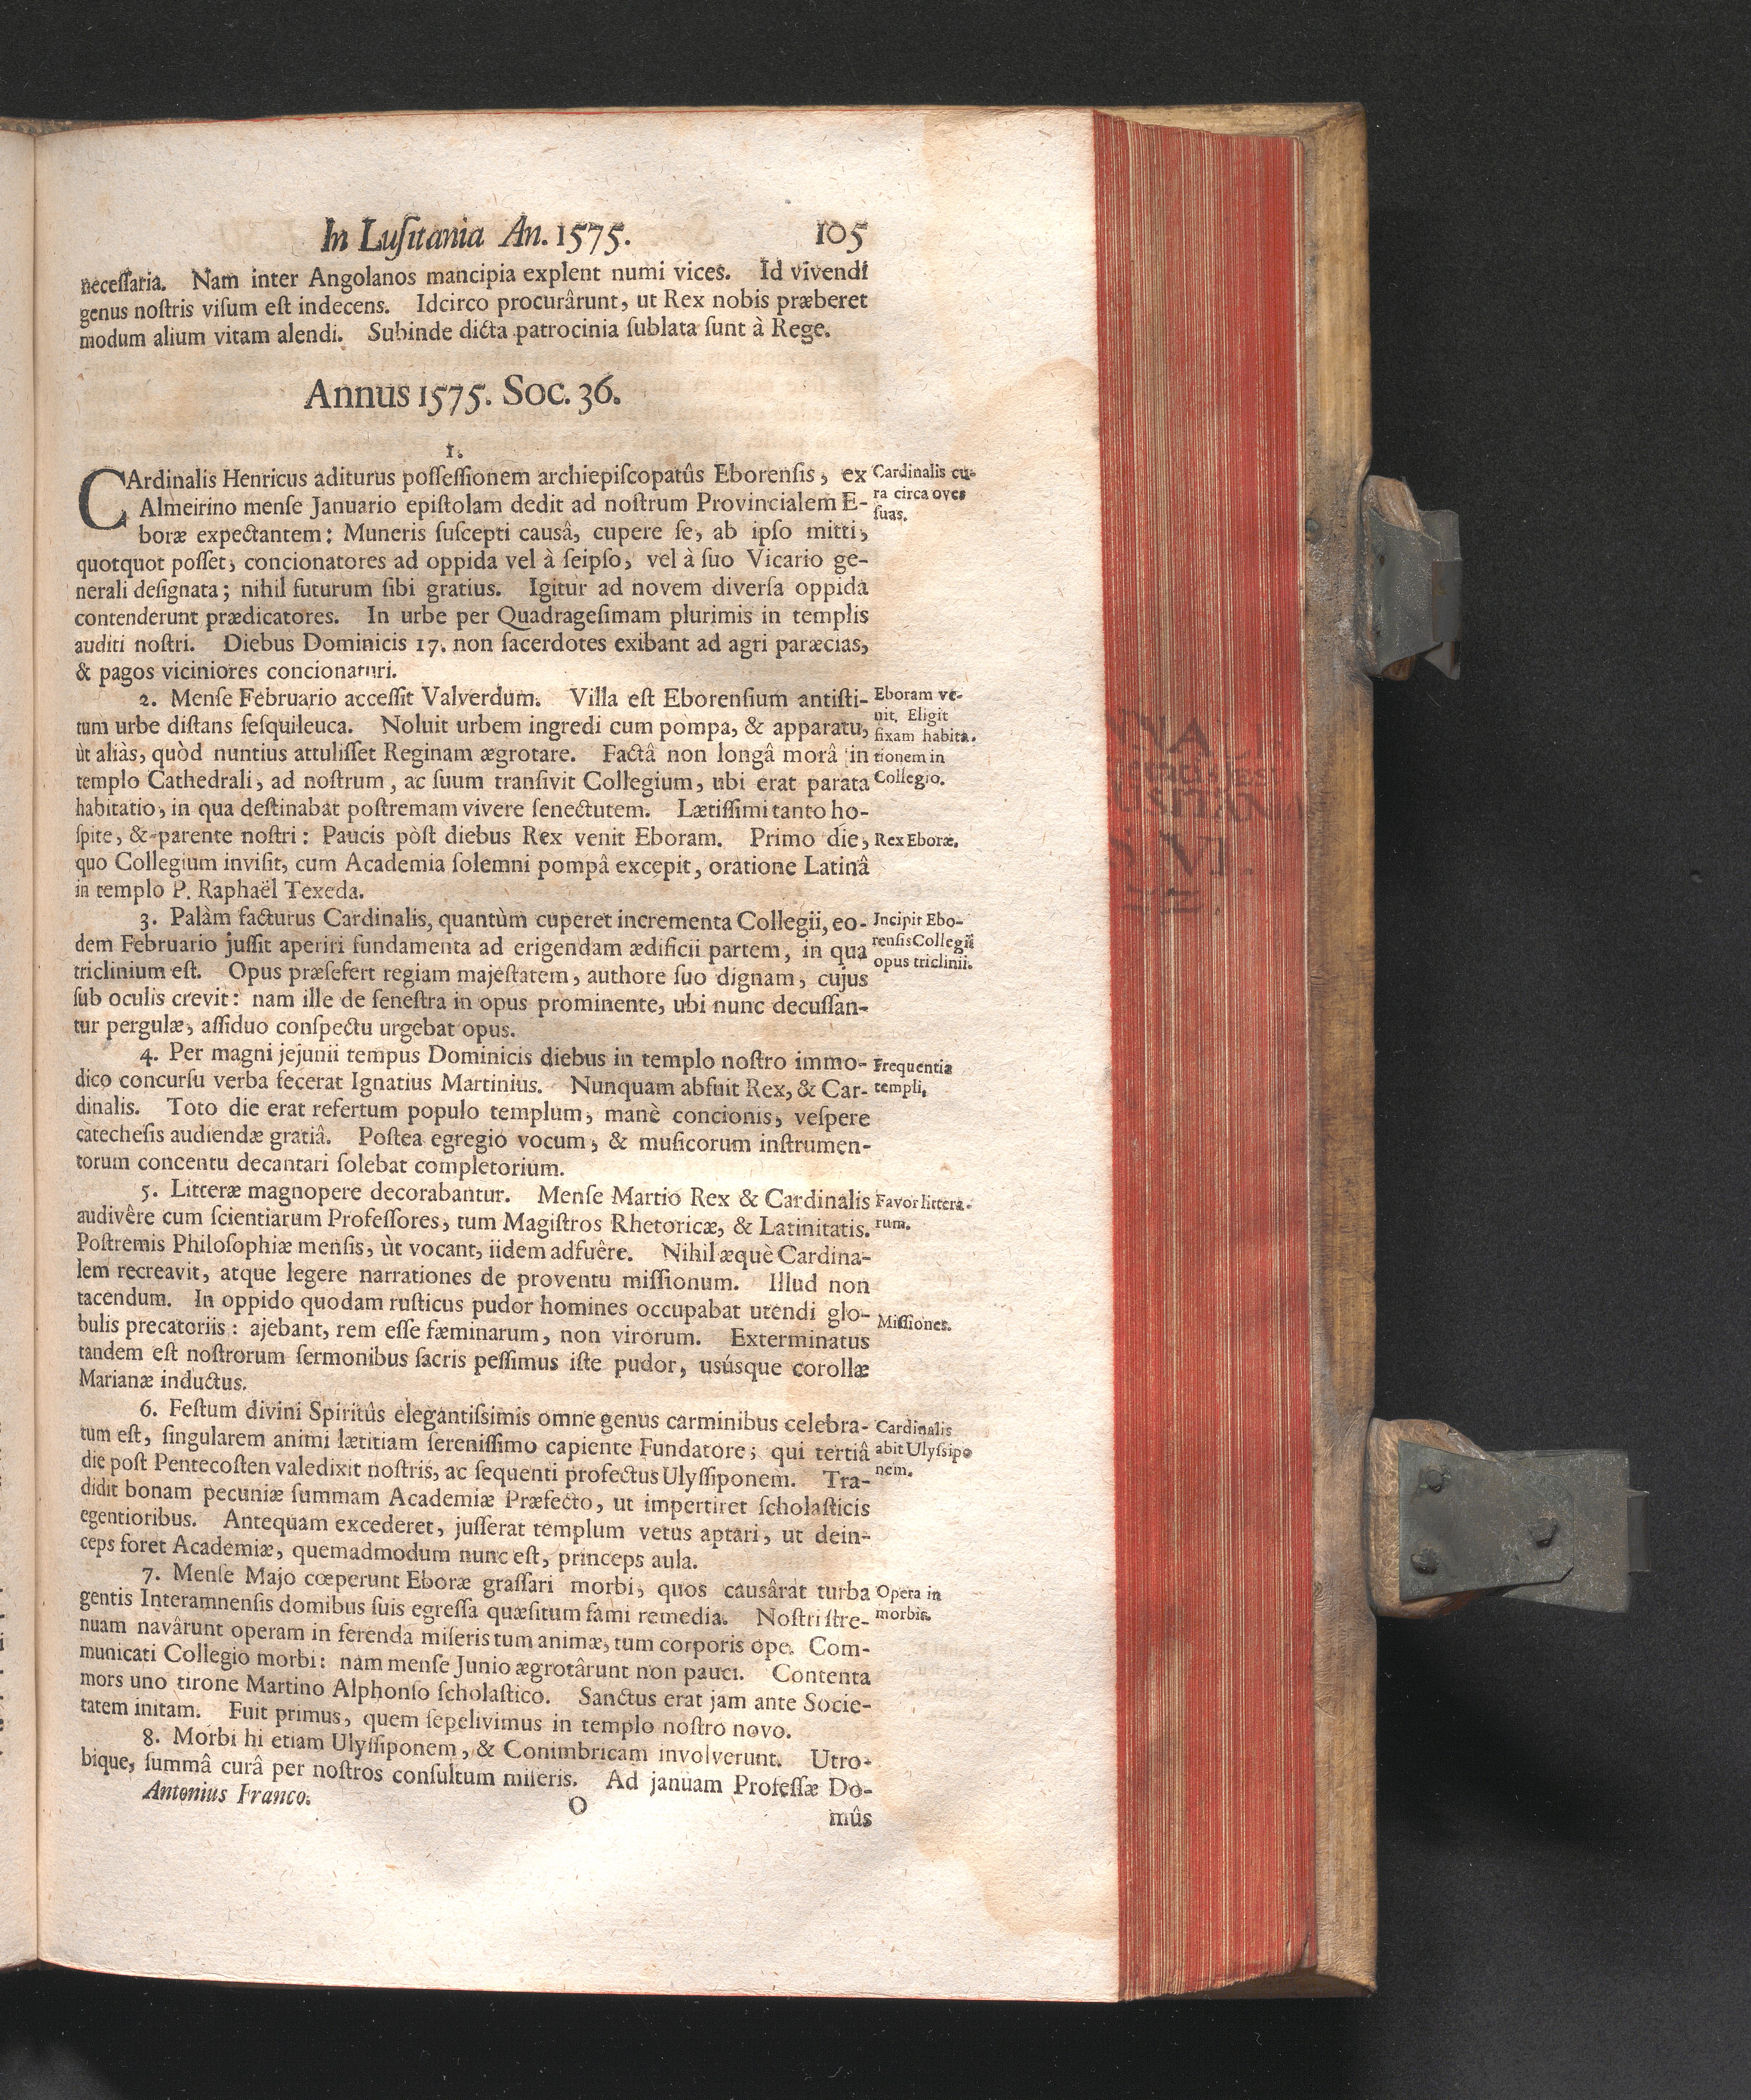 In Luſitania An. 1575. 105
neceſſaria. Nam inter Angolanos mancipia explent numi vices. Id vivendi
genus noſtris viſum eſt indecens. Idcirco procurârunt, ut Rex nobis præberet
modum alium vitam alendi. Subinde dicta patrocinia ſublata ſunt à Rege.
Annus 1575. Soc. 36.
1.
CArdinalis Henricus aditurus poſſeſſionem archiepiſcopatûs Eborenſis, ex
Almeirino menſe Januario epiſtolam dedit ad noſtrum Provincialem E-
boræ expectantem: Muneris ſuſcepti causâ, cupere ſe, ab ipſo mitti,
quotquot poſſet, concionatores ad oppida vel à ſeipſo, vel à ſuo Vicario ge-
nerali deſignata; nihil futurum ſibi gratius. Igitur ad novem diverſa oppida
contenderunt prædicatores. In urbe per Quadrageſimam plurimis in templis
auditi noſtri. Diebus Dominicis 17. non ſacerdotes exibant ad agri paræcias,
& pagos viciniores concionaturi.
Cardinalis cu-
ra circa oves
ſuas.
2. Menſe Februario acceſſit Valverdum. Villa eſt Eborenſium antiſti-
tum urbe diſtans ſeſquileuca. Noluit urbem ingredi cum pompa, & apparatu,
ùt aliàs, quòd nuntius attuliſſet Reginam ægrotare. Factâ non longâ morâ in
templo Cathedrali, ad noſtrum, ac ſuum tranſivit Collegium, ubi erat parata
habitatio, in qua deſtinabat poſtremam vivere ſenectutem. Lætiſſimi tanto ho-
ſpite, & parente noſtri: Paucis pòſt diebus Rex venit Eboram. Primo die,
quo Collegium inviſit, cum Academia ſolemni pompâ excepit, oratione Latinâ
in templo P. Raphaël Texeda.
Eboram ve-
nit. Eligit
fixam habita-
tionem in
Collegio.
Rex Eboræ.
3. Palàm facturus Cardinalis, quantùm cuperet incrementa Collegii, eo-
dem Februario juſſit aperiri fundamenta ad erigendam ædificii partem, in qua
triclinium eſt. Opus præſefert regiam majeſtatem, authore ſuo dignam, cujus
ſub oculis crevit: nam ille de feneſtra in opus prominente, ubi nunc decuſſan-
tur pergulæ, aſſiduo conſpectu urgebat opus.
Incipit Ebo-
renſis Collegii
opus triclinii.
4. Per magni jejunii tempus Dominicis diebus in templo noſtro immo-
dico concurſu verba fecerat Ignatius Martinius. Nunquam abfuit Rex, & Car-
dinalis. Toto die erat refertum populo templum, manè concionis, veſpere
catecheſis audiendæ gratiâ. Poſtea egregio vocum, & muſicorum inſtrumen-
torum concentu decantari ſolebat completorium.
Frequentia
templi.
5. Litteræ magnopere decorabantur. Menſe Martio Rex & Cardinalis
audivêre cum ſcientiarum Profeſſores, tum Magiſtros Rhetoricæ, & Latinitatis.
Poſtremis Philoſophiæ menſis, ùt vocant, iidem adfuêre. Nihil æquè Cardina-
lem recreavit, atque legere narrationes de proventu miſſionum. Illud non
tacendum. In oppido quodam ruſticus pudor homines occupabat utendi glo-
bulis precatoriis: ajebant, rem eſſe fæminarum, non virorum. Exterminatus
tandem eſt noſtrorum ſermonibus ſacris peſſimus iſte pudor, usúsque corollæ
Marianæ inductus.
Favor littera-
rum.
Miſſiones.
6. Feſtum divini Spiritûs elegantiſsimis omne genus carminibus celebra-
tum eſt, ſingularem animi lætitiam ſereniſſimo capiente Fundatore; qui tertiâ
die poſt Pentecoſten valedixit noſtris, ac ſequenti profectus Ulyſſiponem. Tra-
didit bonam pecuniæ ſummam Academiæ Præfecto, ut impertiret ſcholaſticis
egentioribus. Antequam excederet, juſſerat templum vetus aptari, ut dein-
ceps foret Academiæ, quemadmodum nunc eſt, princeps aula.
Cardinalis
abit Ulyſsipo
nem.
7. Menſe Majo cœperunt Eboræ graſſari morbi, quos causârat turba
gentis Interamnenſis domibus ſuis egreſſa quæſitum fami remedia. Noſtri ſtre-
nuam navârunt operam in ferenda miſeris tum animæ, tum corporis ope. Com-
municati Collegio morbi: nam menſe Junio ægrotârunt non pauci. Contenta
mors uno tirone Martino Alphonſo ſcholaſtico. Sanctus erat jam ante Socie-
tatem initam. Fuit primus, quem ſepelivimus in templo noſtro novo.
Opera in
morbis.
8. Morbi hi etiam Ulyſſiponem, & Conimbricam involverunt. Utro-
bique, ſummâ curâ per noſtros conſultum miſeris. Ad januam Profeſſæ Do-
Antonius Franco. O mûs